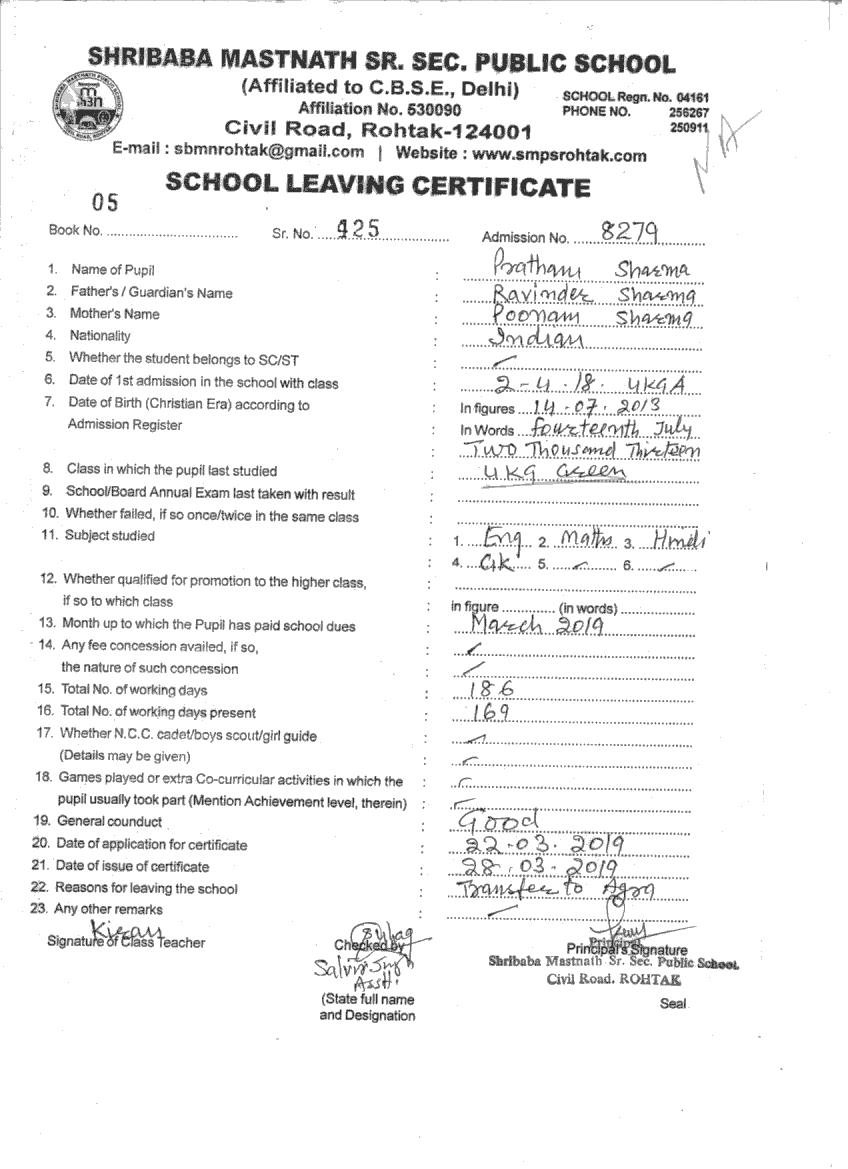 SHRIBABA MASTNATH SR. SEC. PUBLIC SCHOOL
(Affiliated to C.B.S.E., Delhi)
Affiliation No. 530090
Civil Road, Rohtak-124001
SCHOOL Regn. No. 04161
PHONE NO. 256267
250911
NA
E-mail : sbmnrohtak@gmail.com | Website : www.smpsrohtak.com
SCHOOL LEAVING CERTIFICATE
Book No. 05 Sr. No. 425 Admission No. 8279
1. Name of Pupil : Pratham Sharma
2. Father's / Guardian's Name : Ravinder Sharma
3. Mother's Name : Poonam Sharma
4. Nationality : Indian
5. Whether the student belongs to SC/ST :
6. Date of 1st admission in the school with class : 2-4-18. UKG A
7. Date of Birth (Christian Era) according to : In figures 14-07-2013
Admission Register In Words fourteenth July
Two Thousand Thirteen
8. Class in which the pupil last studied : UKG Green
9. School/Board Annual Exam last taken with result :
10. Whether failed, if so once/twice in the same class :
11. Subject studied : 1. Eng 2. Maths 3. Hindi
4. GK 5. 6.
12. Whether qualified for promotion to the higher class, :
if so to which class : in figure (in words)
13. Month up to which the Pupil has paid school dues : March 2019
14. Any fee concession availed, if so, :
the nature of such concession :
15. Total No. of working days : 186
16. Total No. of working days present : 169
17. Whether N.C.C. cadet/boys scout/girl guide :
(Details may be given) :
18. Games played or extra Co-curricular activities in which the :
pupil usually took part (Mention Achievement level, therein) :
19. General counduct : Good
20. Date of application for certificate : 22-03-2019
21. Date of issue of certificate : 28-03-2019
22. Reasons for leaving the school : Transfer to Agra
23. Any other remarks :
Kiran
Signature of Class Teacher
Checked by
Principal's Signature
Principal
Shribaba Mastnath Sr. Sec. Public School
Civil Road. ROHTAK
Asstt.
(State full name
and Designation
Seal